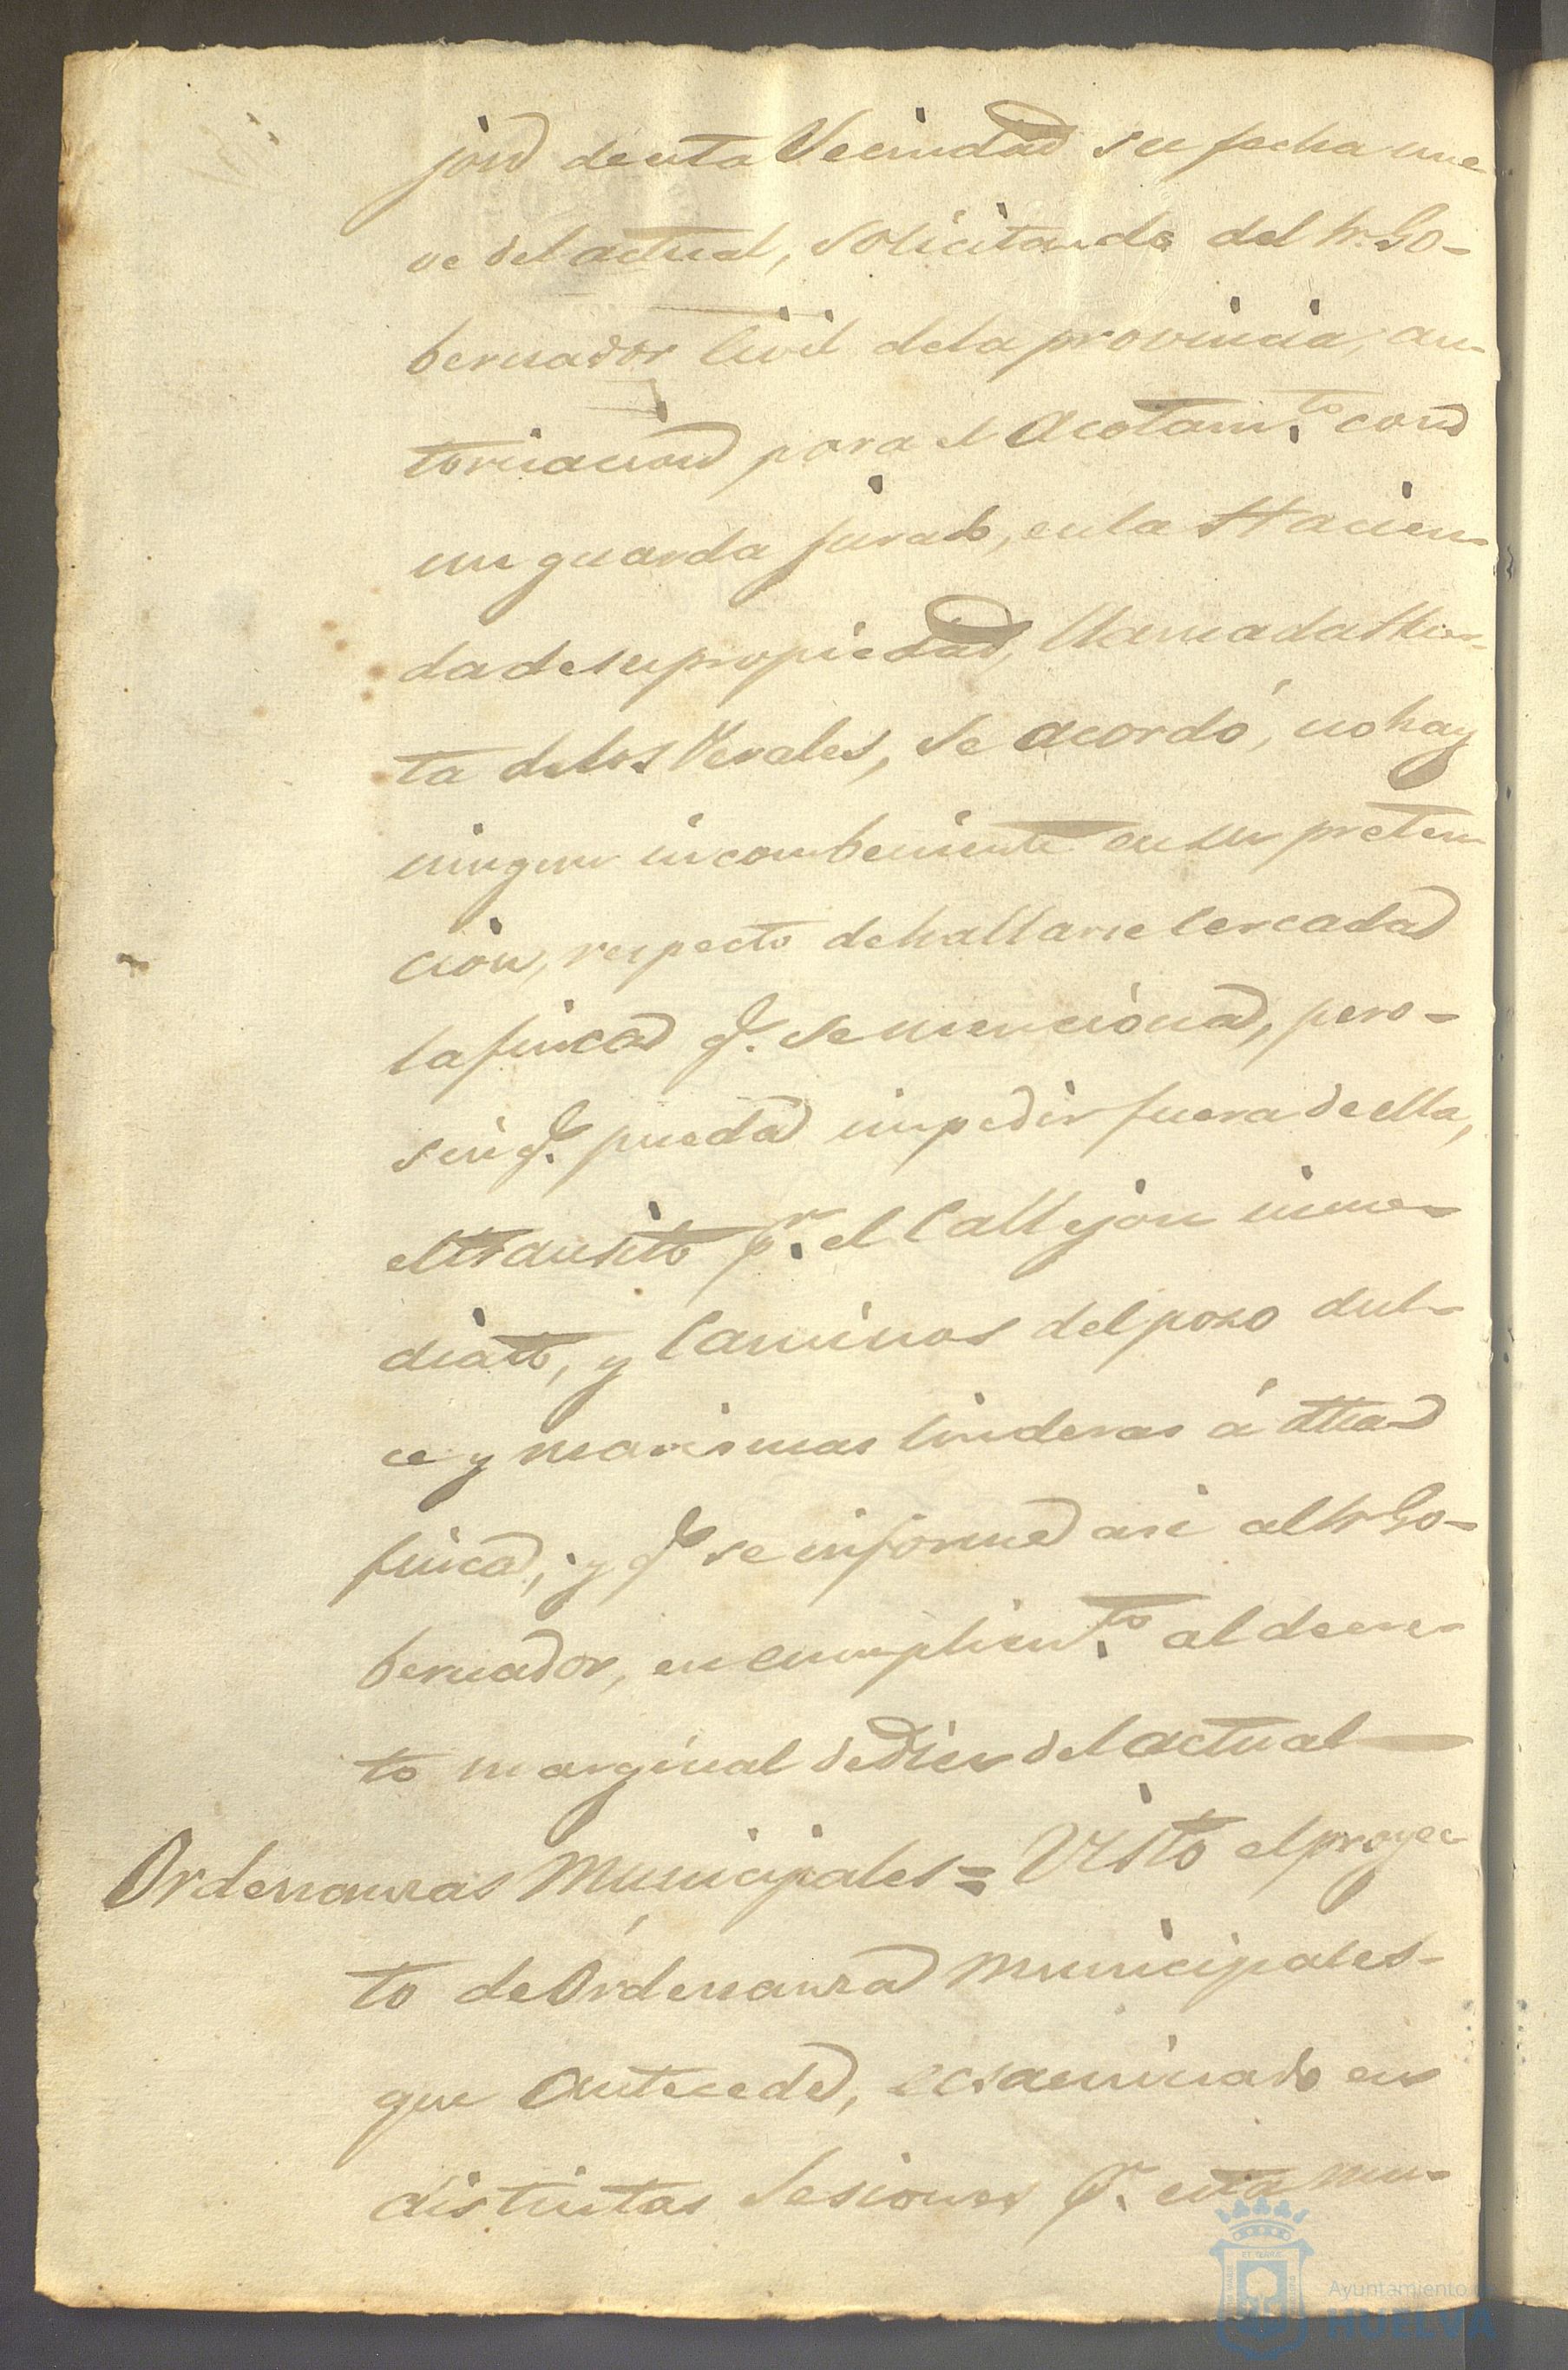 jon de esta Vecindad su fecha nue
ve del actual, solicitando del Sr. Go-
bernador Civil de la provincia, au-
torizacion para el acotam.to con
un guarda jurado, en la Hacien-
da de su propiedad, llamada Huer-
ta de los Perales, se acordó, no hay
ningun incombeniente en su preten
cion, respecto de hallarse cercada
la finca q.e se menciona, pero-
sin q.e pueda impedir fuera de ella,
el transito p.r el Callejon inme-
diato, y Caminos del pozo dul-
ce y marismas linderas á dha
finca; y q.e se informe asi al Sr. Go-
bernador, en cumplim.to al decre-
to marginal de Diez del actual
Ordenanzas Municipales = Visto el proyec
to de Ordenanza Municipales-
que antecede, ecsaminado en
distintas Sesiones p.r esta mu-
Ayuntamiento de
HUELVA